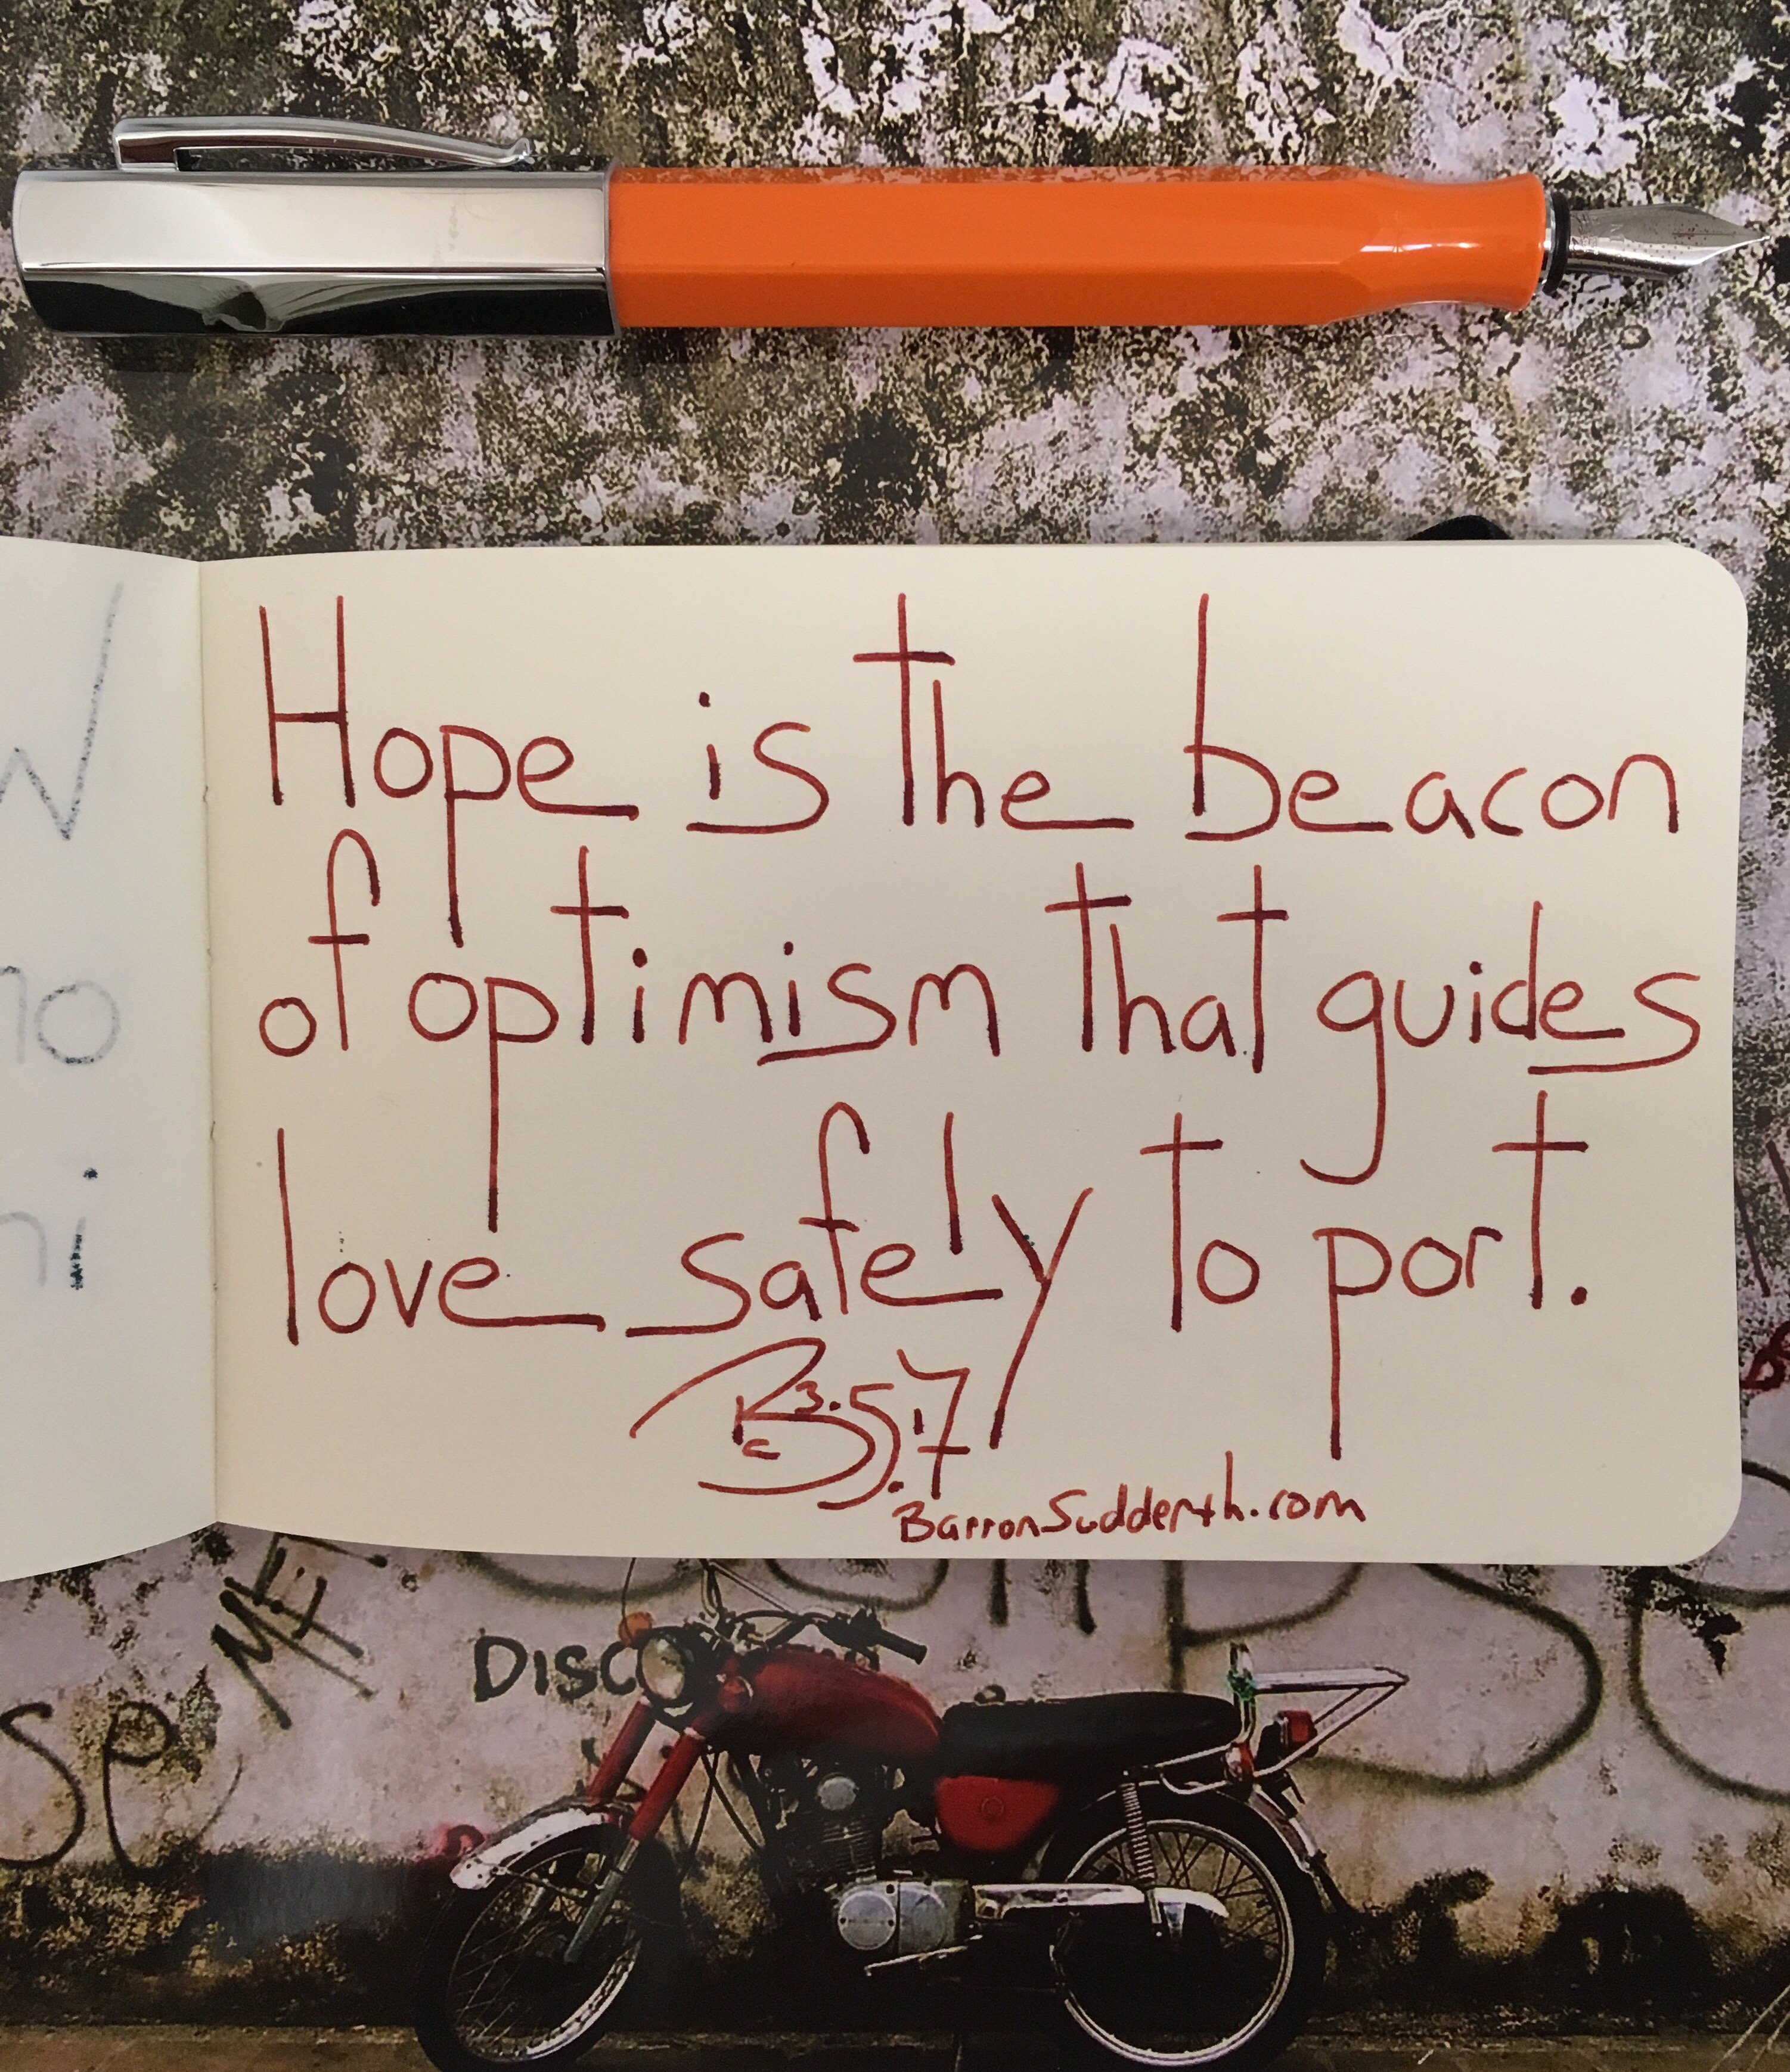 Hope is the beacon
of optimism that guides
love safely to port.
3.5.17
BarronSuddenth.com
DISCO